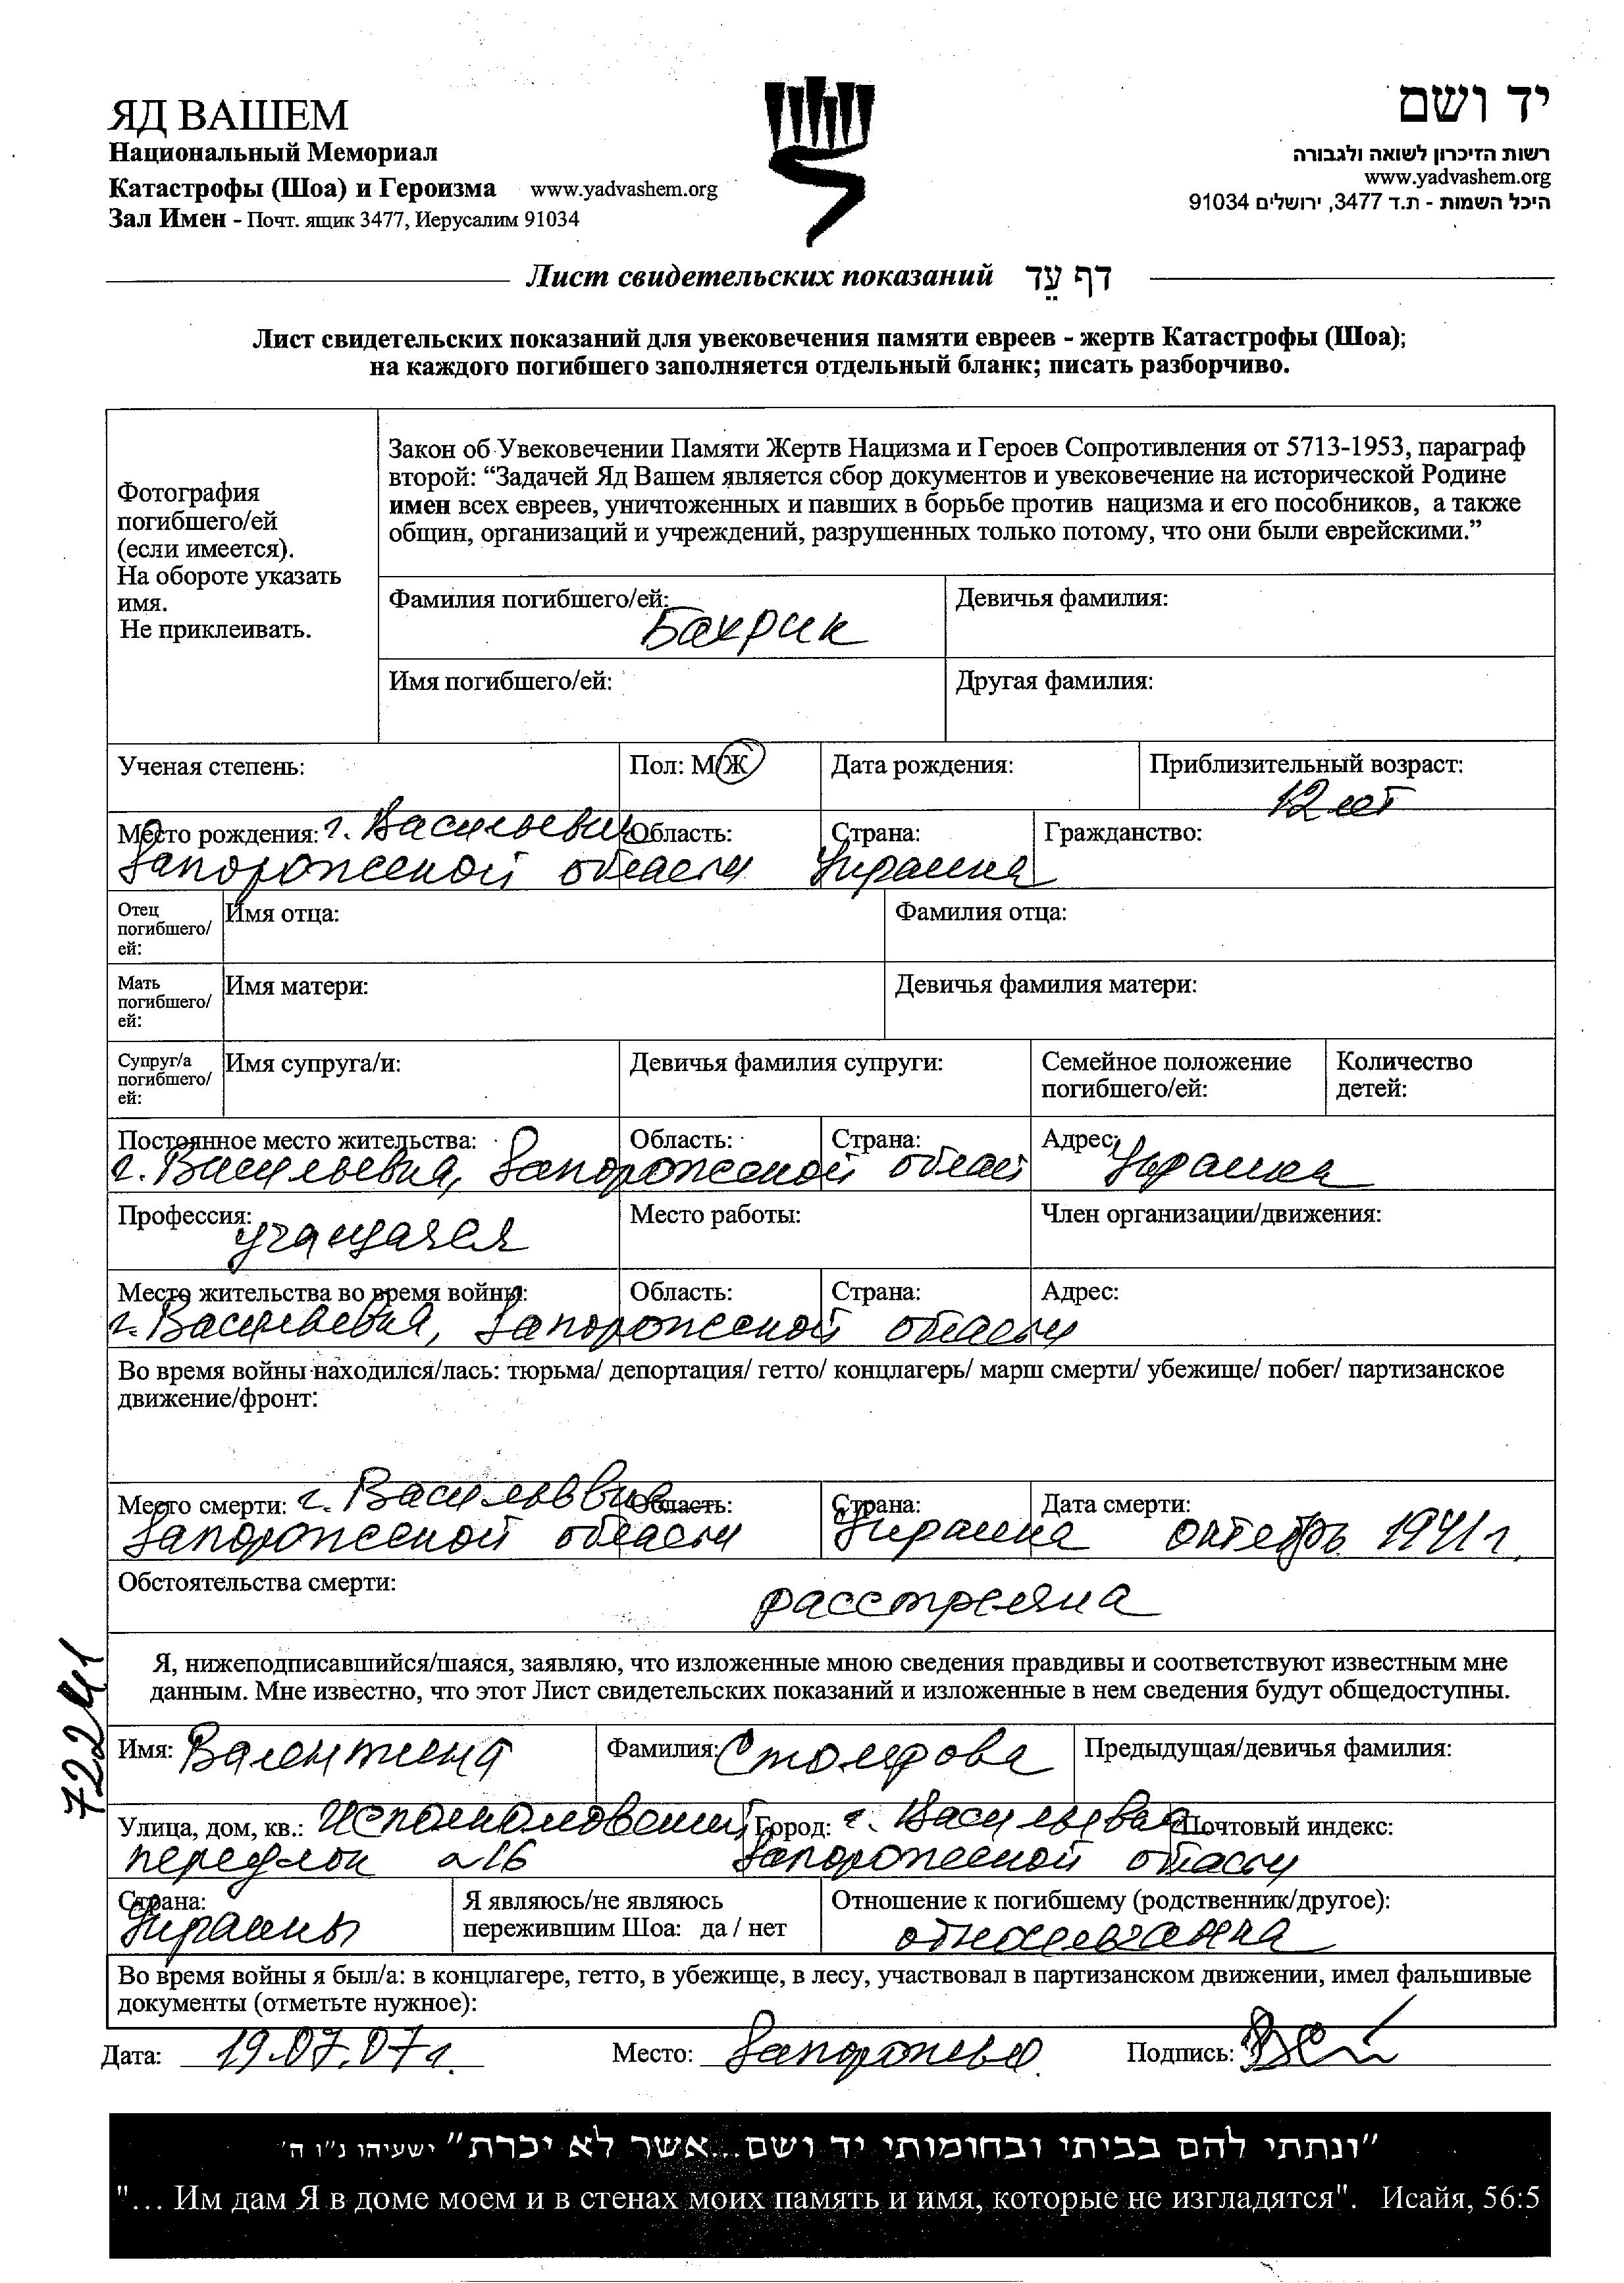 ЯД ВАШЕМ
Национальный Мемориал
Катастрофы (Шоа) и Героизма www.yadvashem.org
Зал Имен - Почт. ящик 3477, Иерусалим 91034
יד ושם
רשות הזיכרון לשואה ולגבורה
www.yadvashem.org
היכל השמות - ת.ד 3477, ירושלים 91034
Лист свидетельских показаний דף עֵד
Лист свидетельских показаний для увековечения памяти евреев - жертв Катастрофы (Шоа);
на каждого погибшего заполняется отдельный бланк; писать разборчиво.
Фотография
погибшего/ей
(если имеется).
На обороте указать
имя.
Не приклеивать.
Закон об Увековечении Памяти Жертв Нацизма и Героев Сопротивления от 5713-1953, параграф
второй: “Задачей Яд Вашем является сбор документов и увековечение на исторической Родине
имен всех евреев, уничтоженных и павших в борьбе против нацизма и его пособников, а также
общин, организаций и учреждений, разрушенных только потому, что они были еврейскими.”
Фамилия погибшего/ей: Девичья фамилия:
Бахрик
Имя погибшего/ей: Другая фамилия:
Ученая степень: Пол: М/Ж Дата рождения: Приблизительный возраст:
12 лет
Место рождения: г. Васильевка Область: Страна: Гражданство:
Запорожской области Украина
Отец
погибшего/
ей:
Имя отца: Фамилия отца:
Мать
погибшего/
ей:
Имя матери: Девичья фамилия матери:
Супруг/а
погибшего/
ей:
Имя супруга/и: Девичья фамилия супруги: Семейное положение
погибшего/ей:
Количество
детей:
Постоянное место жительства: Область: Страна: Адрес:
г. Васильевка, Запорожской област Украина
Профессия: учащаяся Место работы: Член организации/движения:
Место жительства во время войны: Область: Страна: Адрес:
г. Васильевка, Запорожской области
Во время войны находился/лась: тюрьма/ депортация/ гетто/ концлагерь/ марш смерти/ убежище/ побег/ партизанское
движение/фронт:
Место смерти: г. Васильевка Область: Страна: Дата смерти:
Запорожской области Украина октябрь 1941 г.
Обстоятельства смерти:
расстреляна
Я, нижеподписавшийся/шаяся, заявляю, что изложенные мною сведения правдивы и соответствуют известным мне
данным. Мне известно, что этот Лист свидетельских показаний и изложенные в нем сведения будут общедоступны.
72241
Имя: Валентина Фамилия: Предыдущая/девичья фамилия:
Улица, дом, кв.: Город: г. Васильевка Почтовый индекс:
переулок 16 Запорожской области
Страна:
Украины
Я являюсь/не являюсь
пережившим Шоа: да / нет
Отношение к погибшему (родственник/другое):
односельчанка
Во время войны я был/а: в концлагере, гетто, в убежище, в лесу, участвовал в партизанском движении, имел фальшивые
документы (отметьте нужное):
Дата: 19.07.07 г. Место: Запорожье Подпись:
”ונתתי להם בביתי ובחומותי יד ושם...אשר לא יכרת” ישעיהו נ"ו ה'
"... Им дам Я в доме моем и в стенах моих память и имя, которые не изгладятся". Исайя, 56:5